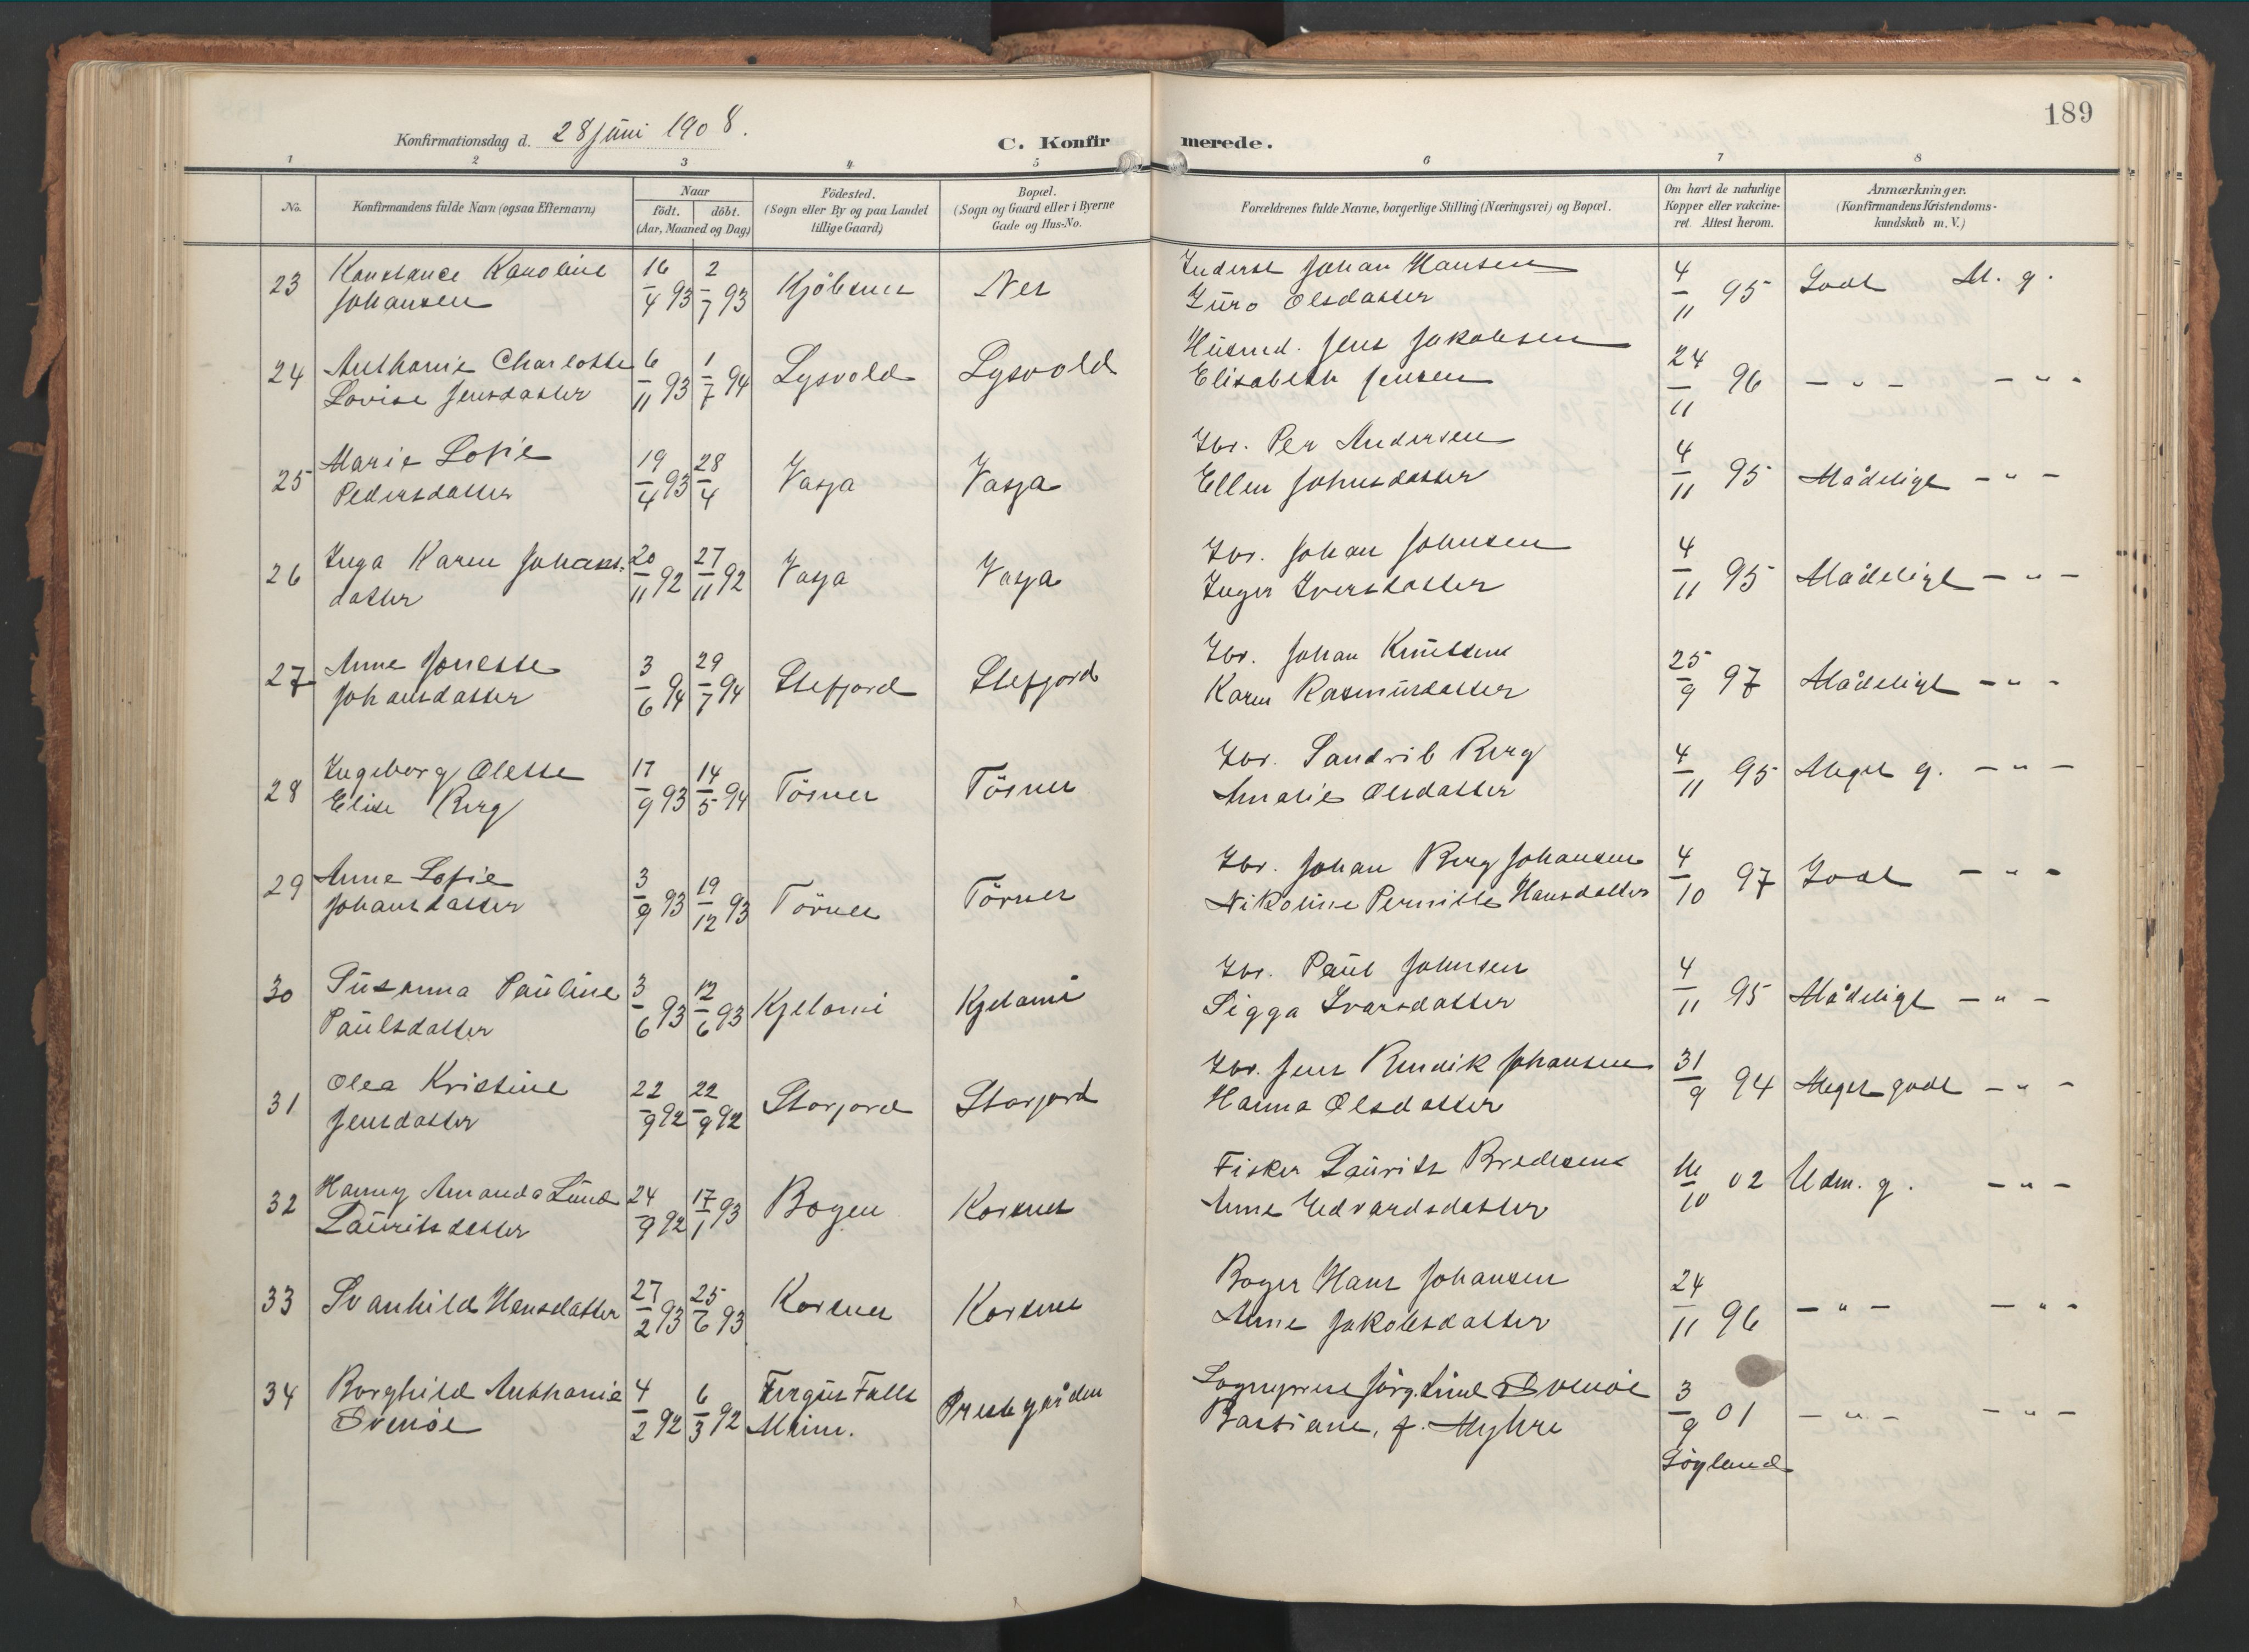 189
Konfirmationsdag d. 28 juni 1908.
C. Konfirmerede.
1 2 3 4 5 6 7 8
No.
Konfirmandens fulde Navn (ogsaa Efternavn)
Naar
födt. döbt.
(Aar, Maaned og Dag)
Födested.
(Sogn eller By og paa Landet
tillige Gaard)
Bopæl.
(Sogn og Gaard eller i Byerne
Gade og Hus-No.
Forældrenes fulde Navne, borgerlige Stilling (Næringsvei) og Bopæl.
Om havt de naturlige
Kopper eller vakcine-
ret. Attest herom.
Anmærkninger.
(Konfirmandens Kristendoms-
kundskab m. V.)
23 Konstance Karoline 16/4 93 2/7 93 Nes Inderst Johan Hansen 4/11 95 Godt M. g.
Johansen Guro Olsdatter
24 Anthonie Charlotte 6/11 93 1/7 94 Lysvold Lysvold Husmd. Jens Jakobsen 24/11 96 - " - - " -
Lovise Jensdatter Elisabeth Jensen
25 Marie Sofie 19/4 93 28/4 Vasja Vasja Gbr. Per Andersen 4/11 95 Mådeligt - " -
Pedersdatter Ellen Johnsdatter
26 Inga Karen Johans- 20/11 92 27/11 92 Vasja Vasja Gbr. Johan Johnsen 4/11 95 Mådeligt - " -
datter Inger Iversdatter
27 Anne Jonette 3/6 94 29/7 94 Stefjord Stefjord Gbr. Johan Knutsen 25/9 97 Mådeligt - " -
Johansdatter Karen Rasmusdatter
28 Ingeborg Olette 17/9 93 14/5 94 Tösnes Tösnes Gbr. Sandrib Berg 4/11 95 Meget g. - " -
Elise Berg Amalie Olsdatter
29 Anne Sofie 3/9 93 19/12 93 Törnes Törnes Gbr. Johan Berg Johansen 4/10 97 Godt - " -
Johansdatter Nikoline Pernille Hansdatter
30 Susanna Pauline 3/6 93 12/6 93 Kjelami Kjelami Gbr. Paul Johnsen 4/11 95 Mådeligt - " -
Paulsdatter Sigga Ivarsdatter
31 Olea Kristine 22/9 92 22/9 92 Storjord Storjord Gbr. Jens Rendik Johansen 31/9 94 Meget godt - " -
Jensdatter Hanna Olsdatter
32 Hanny Amanda Lund 24/9 92 17/1 93 Bogen Korsnes Fisker Laurits Bredesen 16/10 02 Udm. g. - " -
Lauritsdatter Anne Edvardsdatter
33 Svanhild Hansdatter 27/2 93 25/6 93 Korsnes Korsnes Bager Hans Johansen 24/11 96 - " - - " -
Anne Jakobsdatter
34 Borghild Anthonie 4/2 92 6/3 92 Fergus Falls Prestegården Sogneprest Jörg. Lund Svenöe 3/9 01 - " - - " -
Svenöe Minn. Bastiane, f. Myhre
Söyland